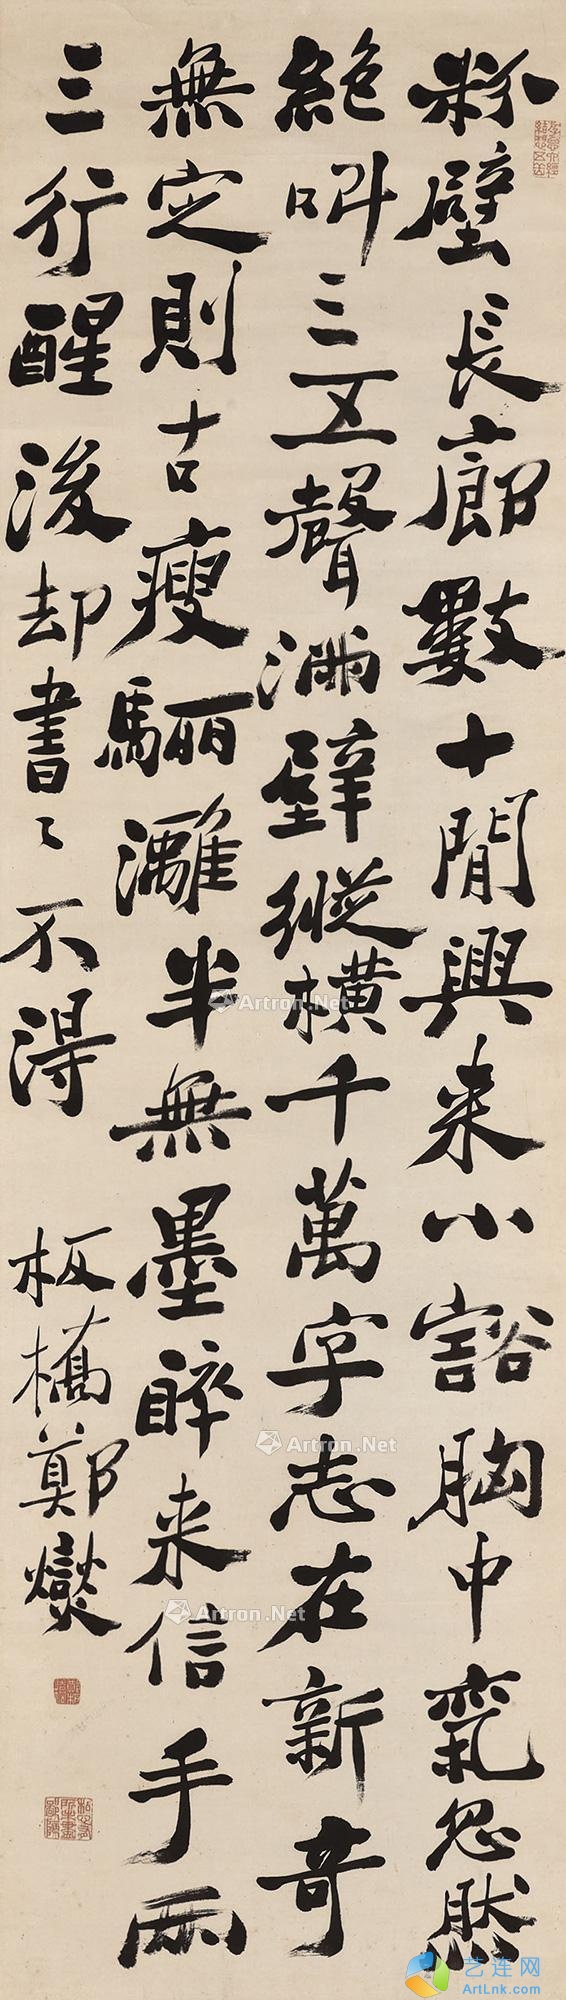 粉壁長廊數十間興来小豁胸中氣忽然
絶叫三五聲滿壁縱橫千萬字志在新奇
無定則古瘦驪灕半無墨醉来信手兩
三行醒後却書々不得
板橋鄭燮
Artron.Net
Artron.Net
Artron.Net
艺连网
ArtLnk.com